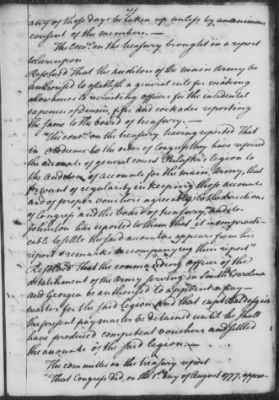 any of those days be taken up unless by unanimous
consent of the members. —
The Comee. on the treasury brought in a report
whereupon
Resolved That the auditors of the main Army be
authorised to establish a general rule for making
allowances to recruiting officers for the incidental
expences of drum, fife and cockades reporting
the same to the board of treasury. —
The Comee. on the treasury having reported that
in obedience to the order of Congress they have referred
the accounts of general count Pulaski's legion to
the auditors of accounts for the main Army, that
for want of regularity in keeping those accounts
and of proper vouchers agreeable to the directions
of Congress and the board of treasury,
Johnson has reported to them that it is impractic-
able to settle the said accounts as appears from his
report & remarks accompanying their report"
Resolved That the commanding officer of the
detachment of the Army serving in South Carolina
and Georgia be authorised to appoint a pay-
master for the said Legion and that capt Baldesqui
the present pay master be detained until he shall
have produced competent vouchers and settled
the accounts of the said legion. —
The committee on the treasury report
That Congress did, on the 1st. day of August 1777, appro-